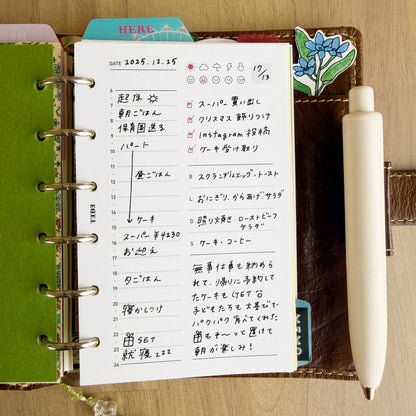 HERE
DATE 2025.12.25
17/13
6
7
8
9
10
11
12
13
14
15
16
17
18
19
20
21
22
23
24
起床
朝ごはん
保育園送る
パート
昼ごはん
ケーキ
スーパー ¥4230
お迎え
夕ごはん
寝かしつけ
SET
就寝 zzz
スーパー買い出し
クリスマス飾りつけ
Instagram 投稿
ケーキ受け取り
B スクランブルエッグ・トースト
L おにぎり、からあげ、サラダ
D 照り焼き・ローストビーフ
サラダ
S ケーキ・コーヒー
無事仕事も納めら
れて、帰りに予約して
たケーキもGET
子どもたちも大喜びで
パクパク食べてくれた
もそ〜っと置けて
朝が楽しみ!